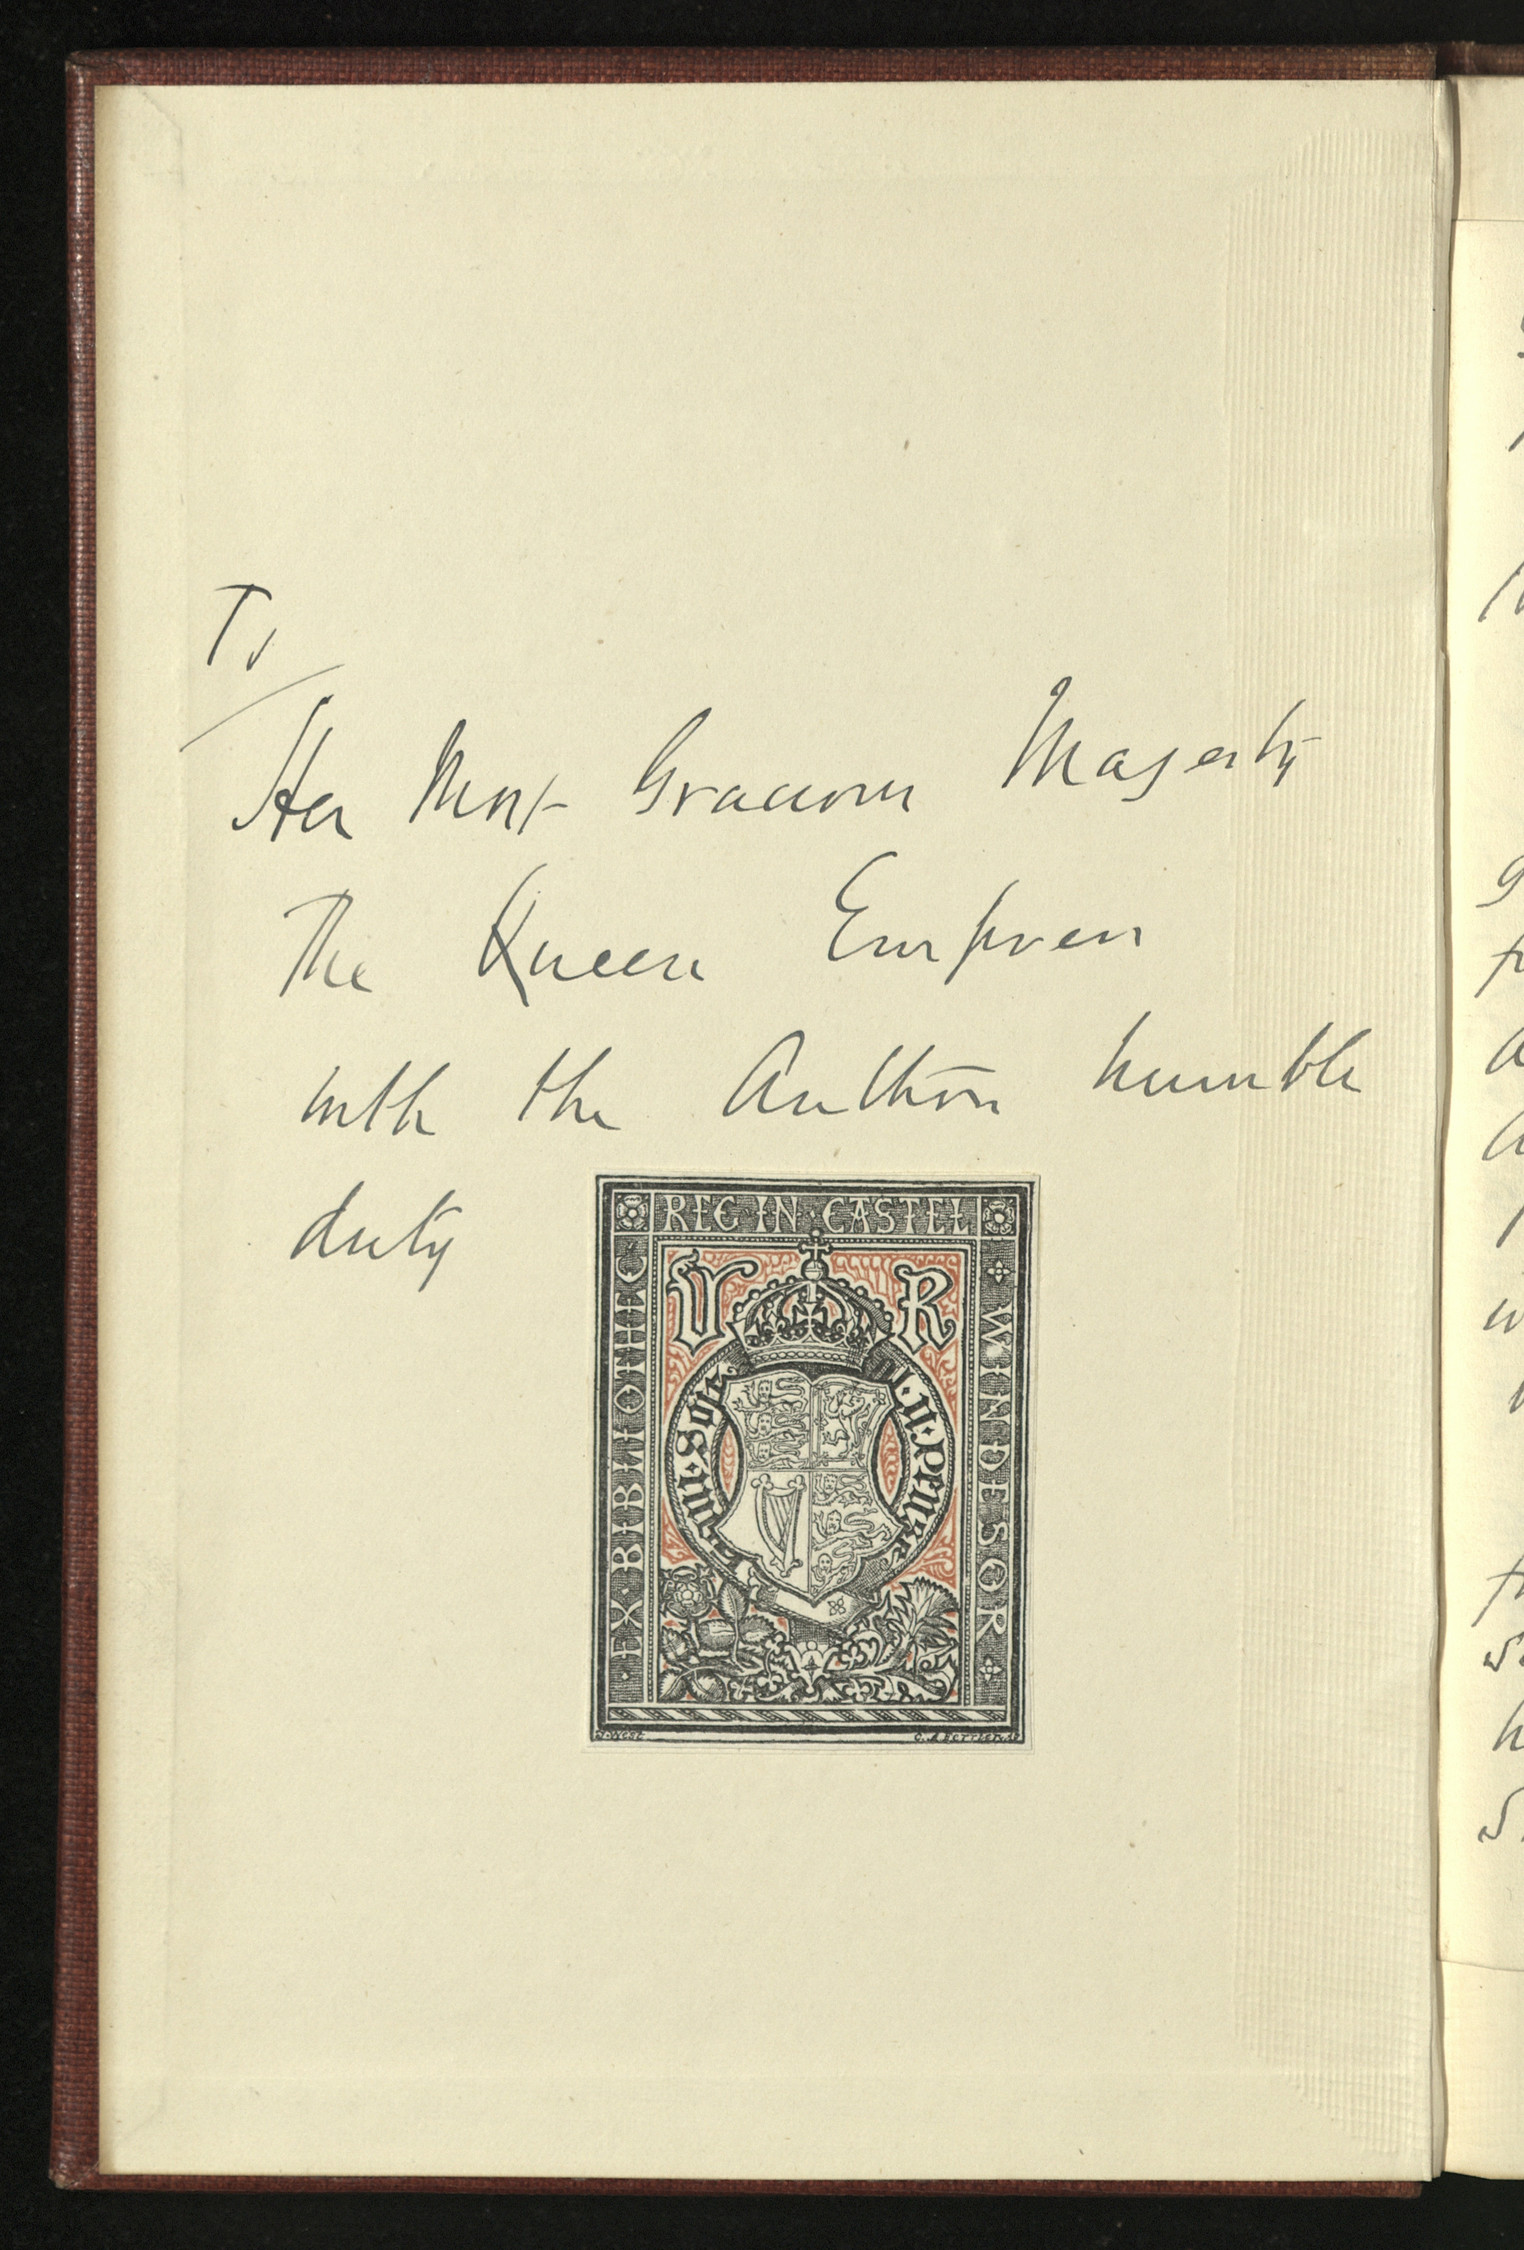 To
Her Most Gracious Majesty
The Queen Empress
with the Authors humble
duty
REG·IN·CASTEL
EX·BIBLIOTHEC
WINDESOR
V R
Honi·Soit
qui·mal·y·Pense
J. West